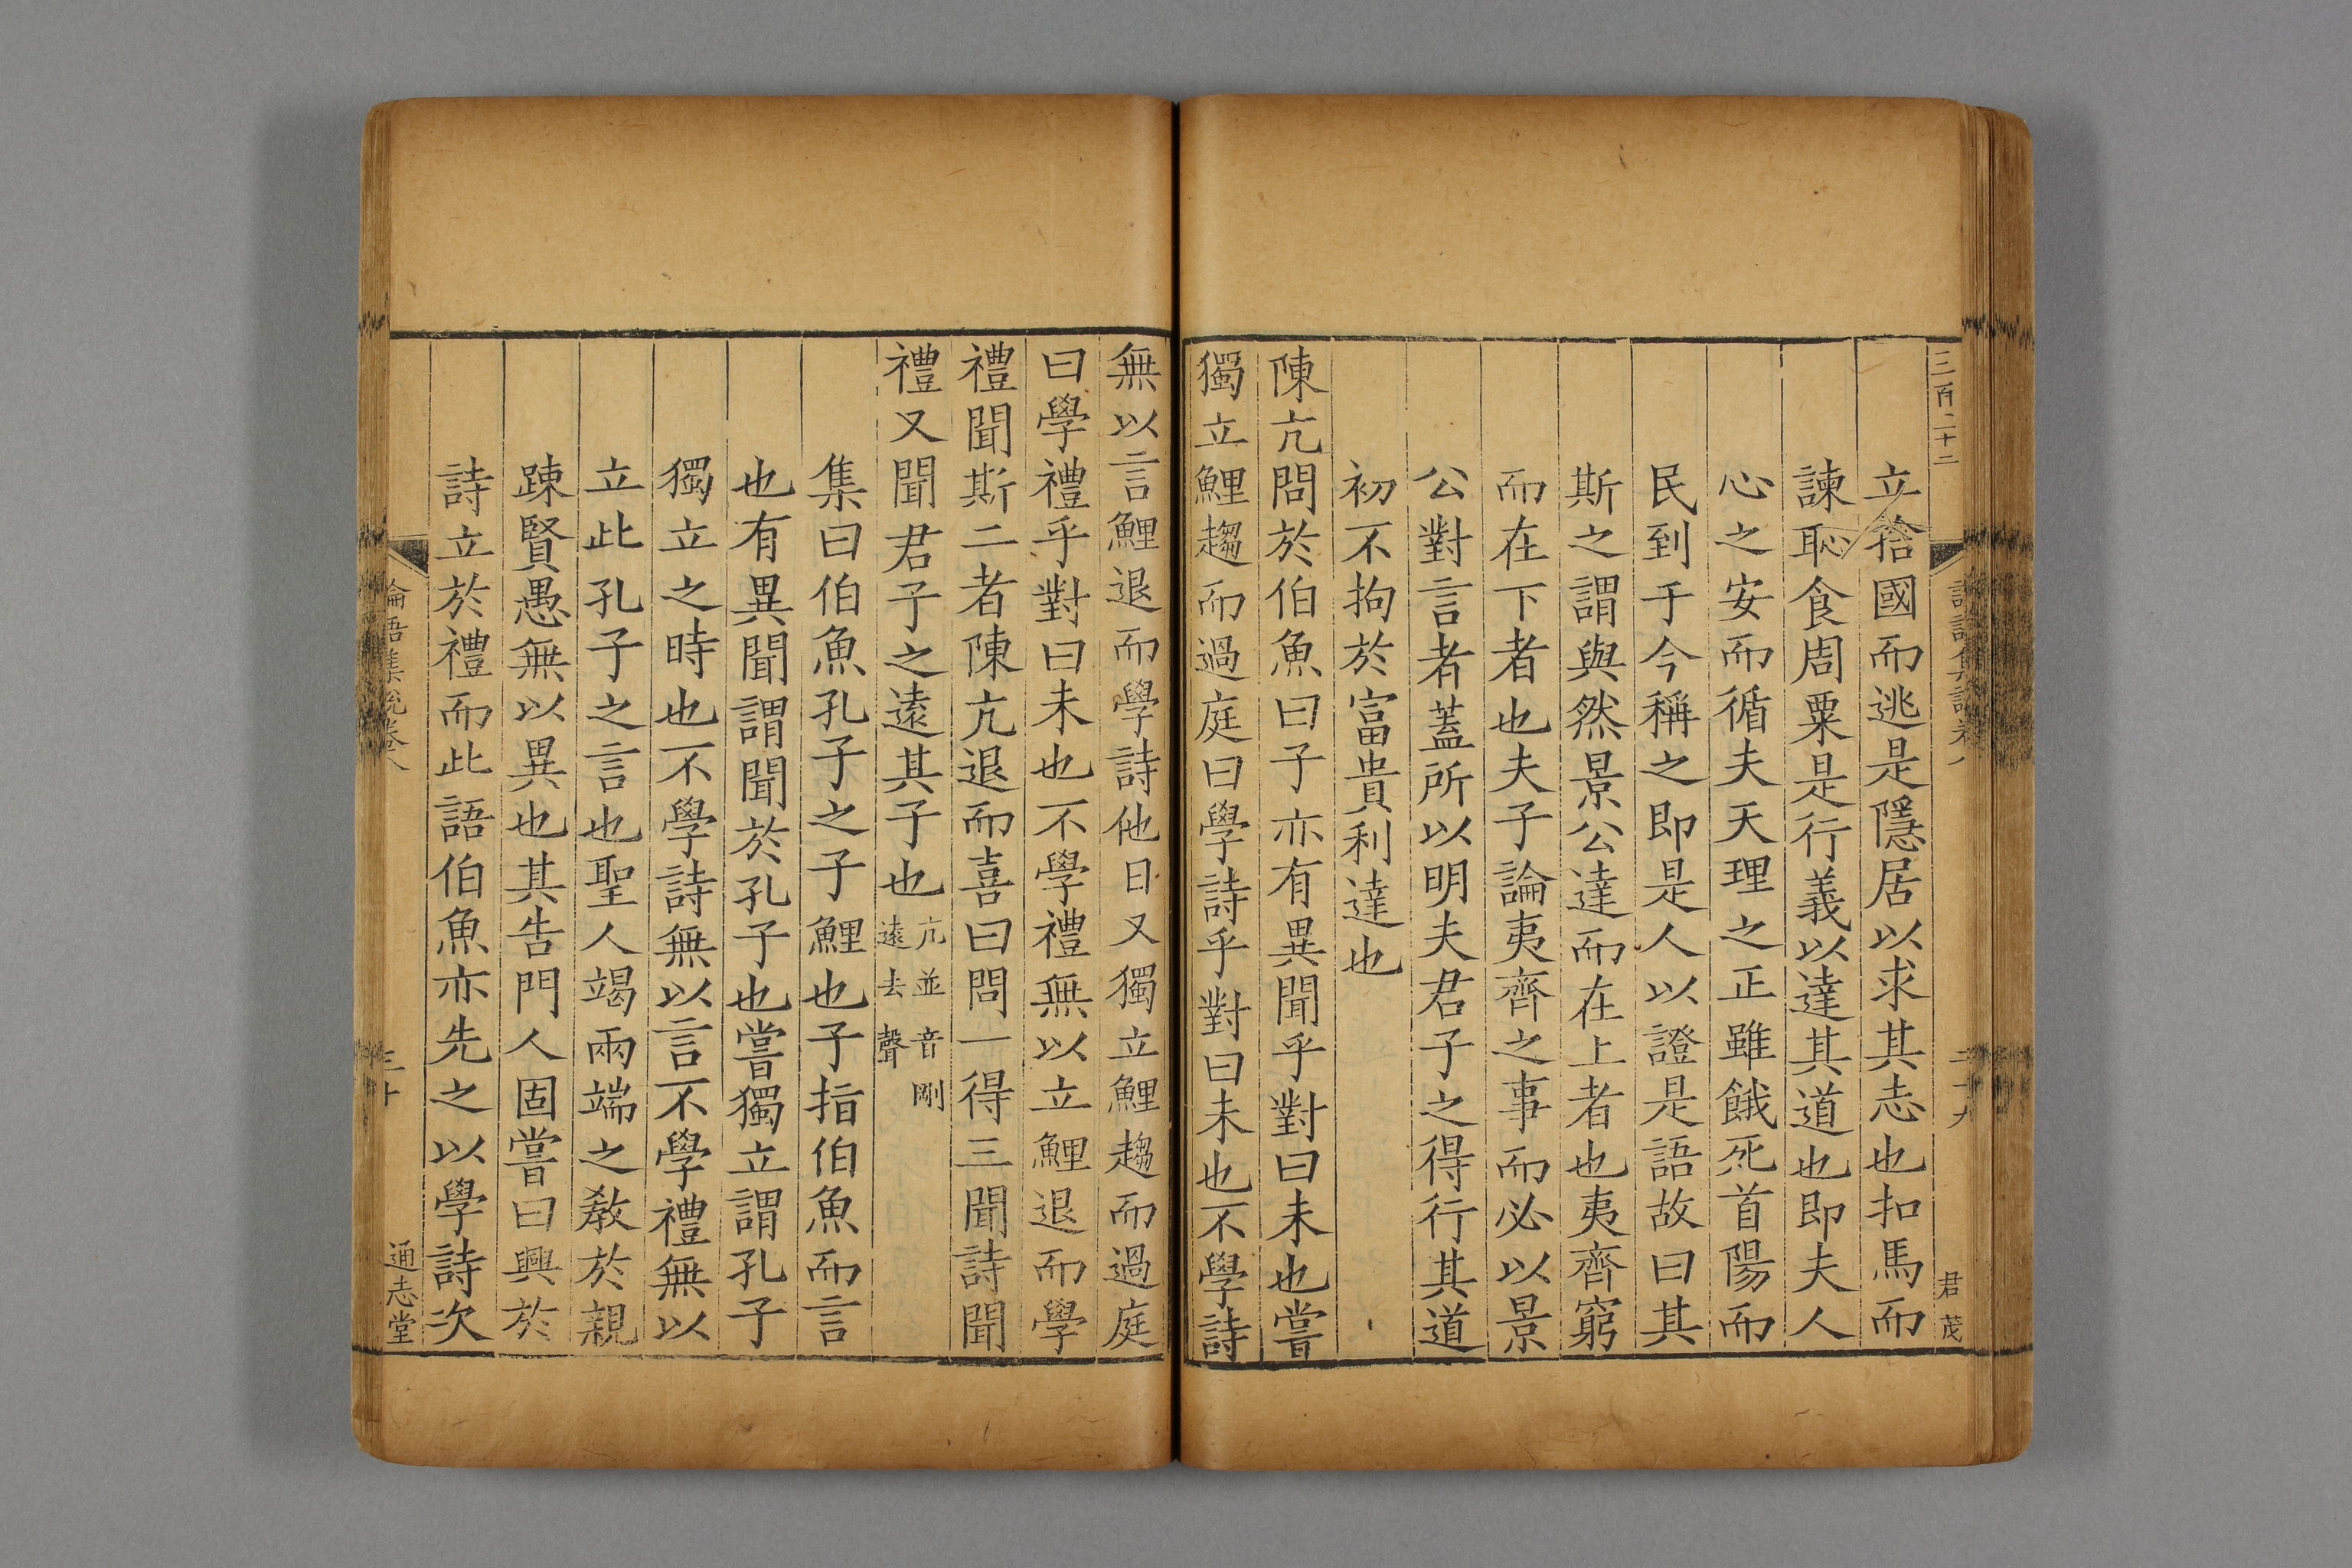 三百二十二
二十九
君茂
立捨國而逃是隱居以求其志也扣馬而
諫恥食周粟是行義以達其道也即夫人
心之安而循夫天理之正雖餓死首陽而
民到于今稱之即是人以證是語故曰其
斯之謂與然景公達而在上者也夷齊窮
而在下者也夫子論夷齊之事而必以景
公對言者蓋所以明夫君子之得行其道
初不拘於富貴利達也
陳亢問於伯魚曰子亦有異聞乎對曰未也嘗
獨立鯉趨而過庭曰學詩乎對曰未也不學詩
無以言鯉退而學詩他日又獨立鯉趨而過庭
曰學禮乎對曰未也不學禮無以立鯉退而學
禮聞斯二者陳亢退而喜曰問一得三聞詩聞
禮又聞君子之遠其子也亢並音剛
遠去聲
集曰伯魚孔子之子鯉也子指伯魚而言
也有異聞謂聞於孔子也嘗獨立謂孔子
獨立之時也不學詩無以言不學禮無以
立此孔子之言也聖人竭兩端之敎於親
踈賢愚無以異也其告門人固嘗曰興於
詩立於禮而此語伯魚亦先之以學詩次
論語集說卷八
三十
通志堂